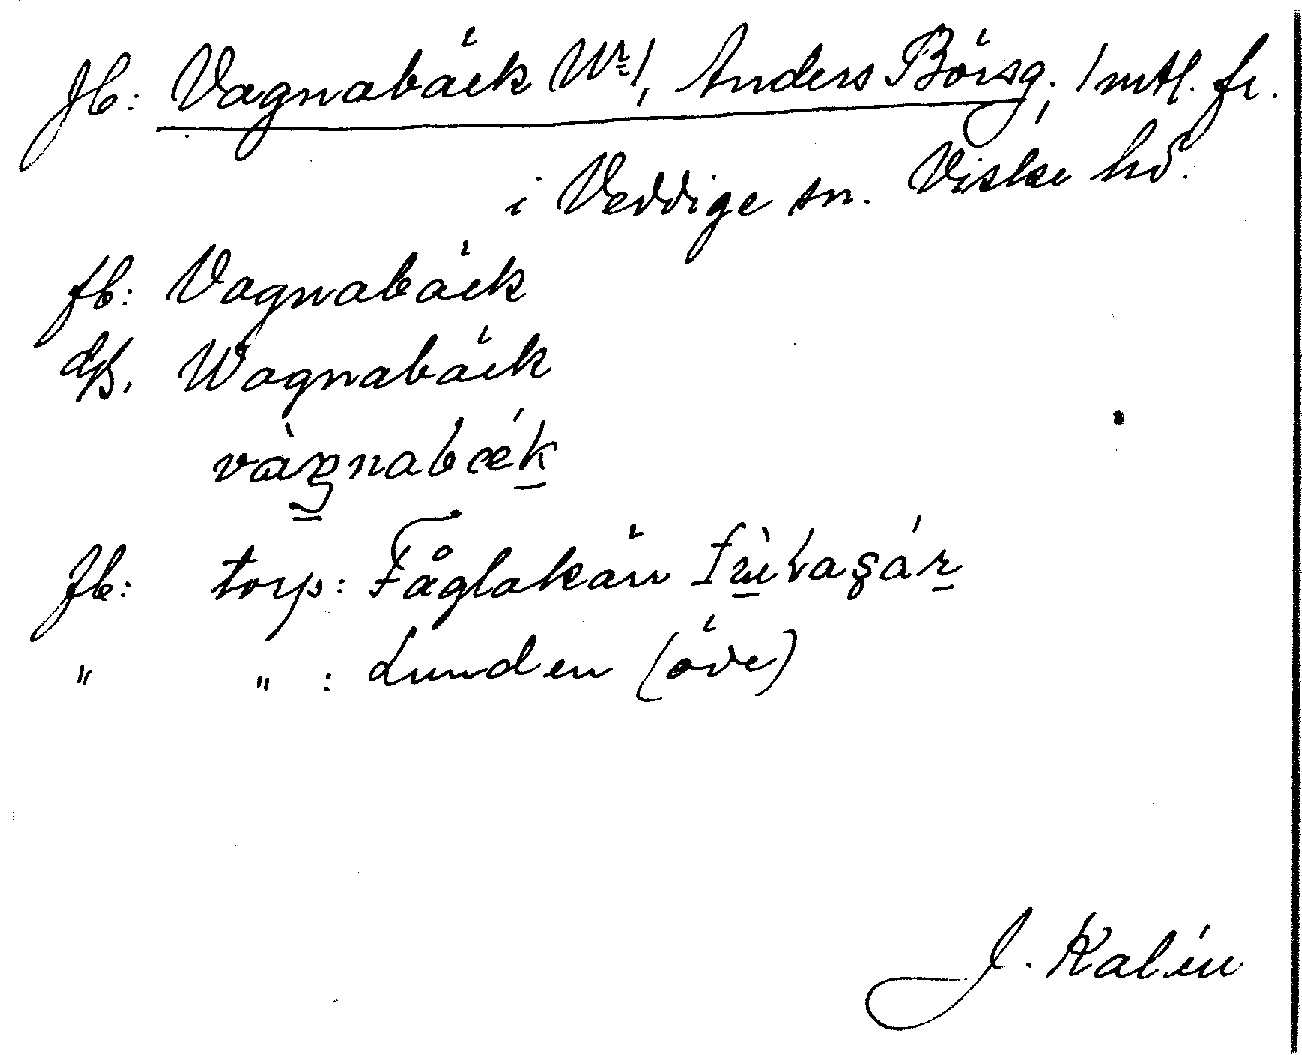 Jb: Vagnabäck Nr 1, Anders Börsg. 1 mtl. fr.
i Veddige sn. Viske hd.
fb: Vagnabäck
Wagnabäck
Jb: torp: Fåglakärr
" " : Lunden (öde)
J. Kalén